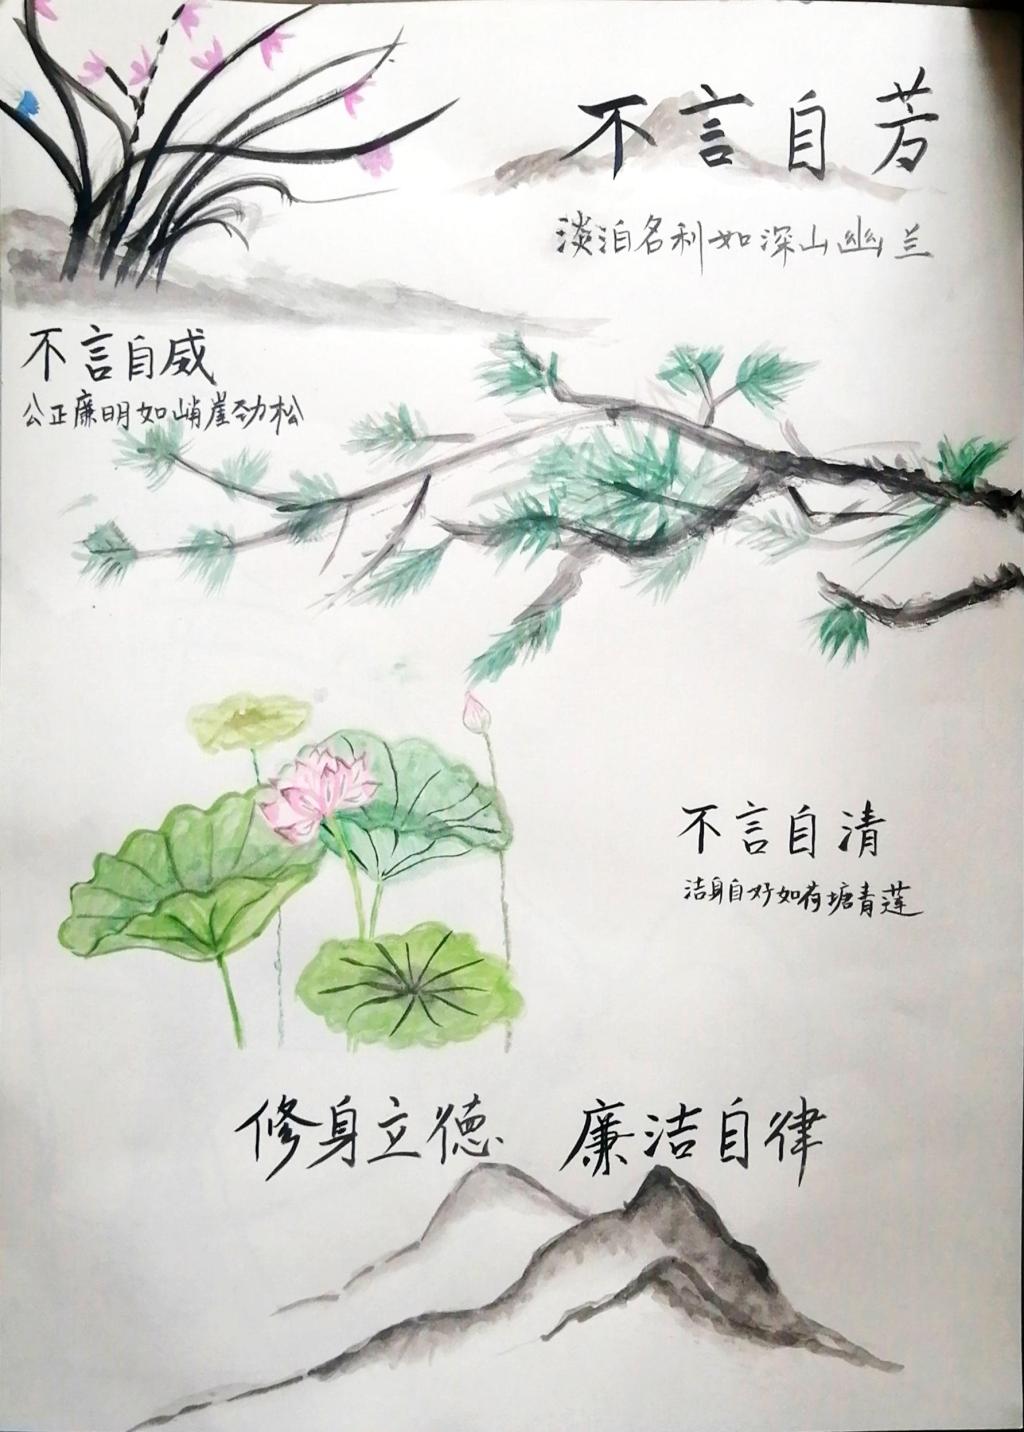 不言自芳
淡泊名利如深山幽兰
不言自威
公正廉明如峭崖劲松
不言自清
洁身自好如荷塘青莲
修身立德 廉洁自律